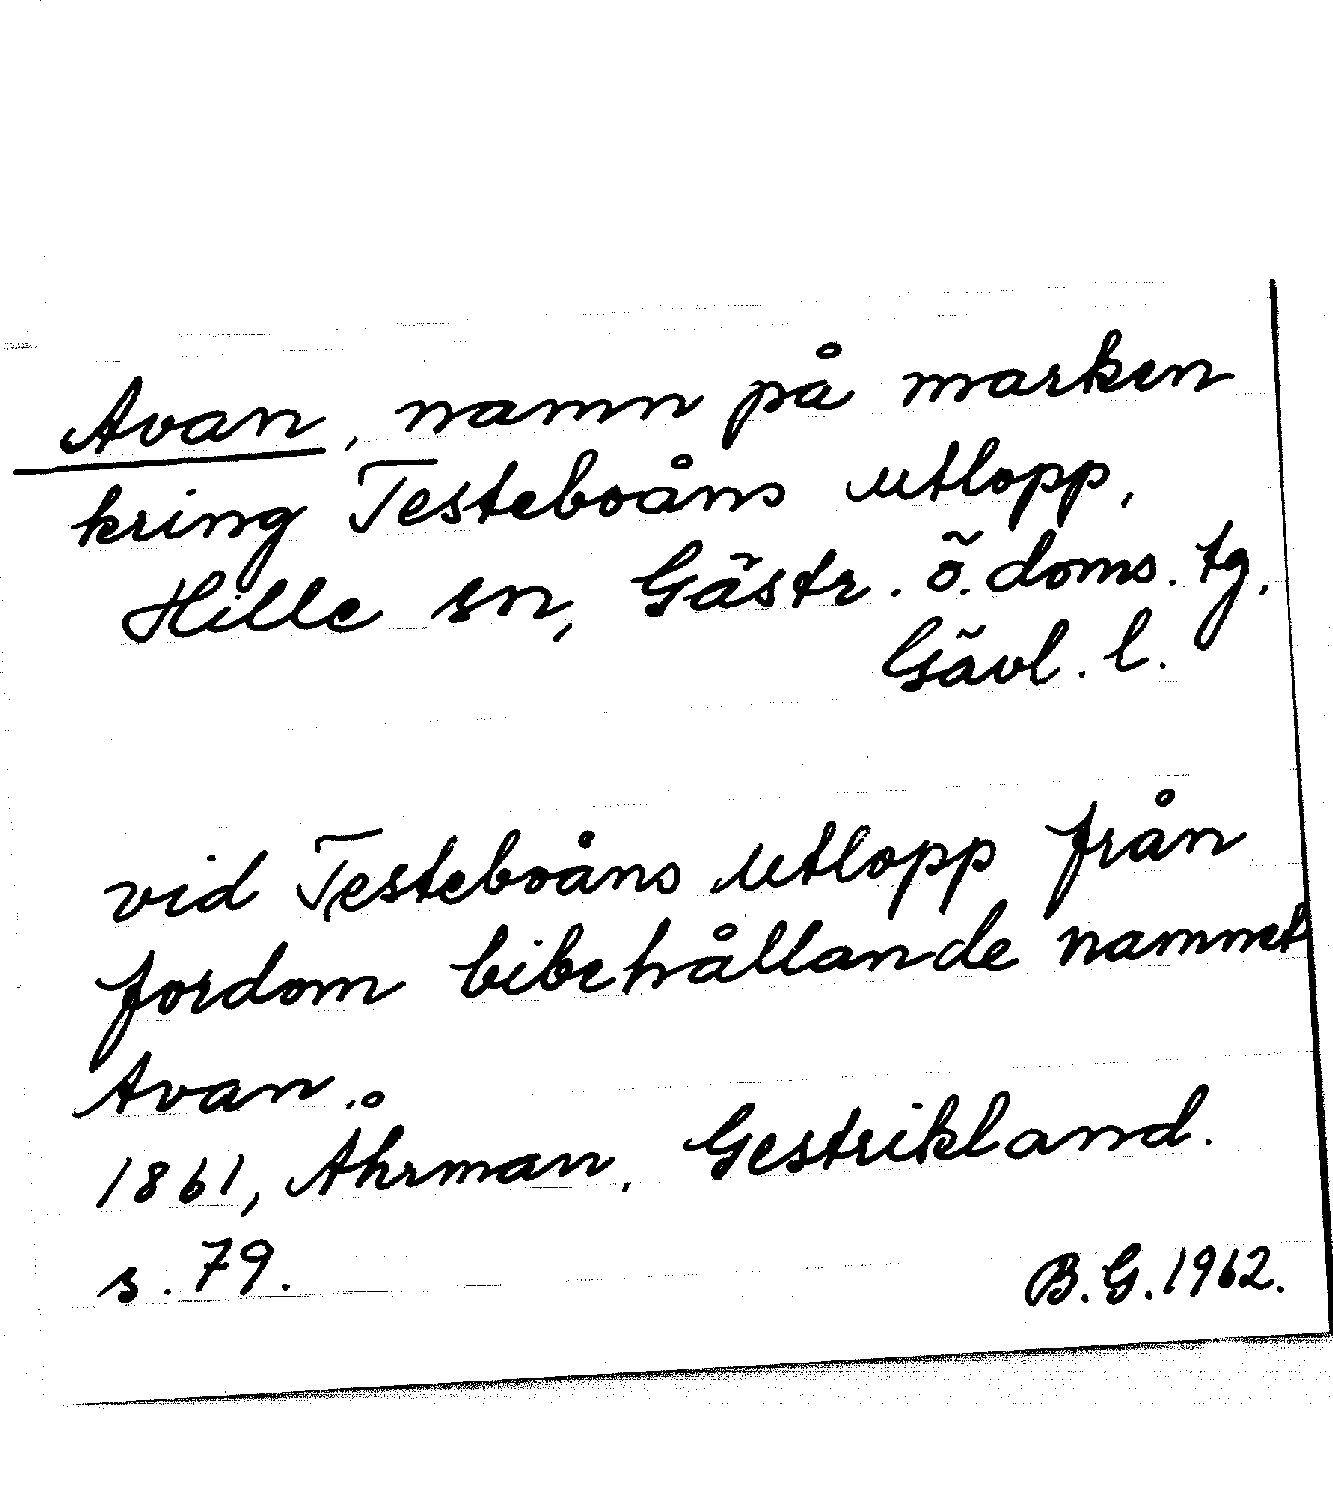 Avan, namn på marken
kring Testeboåns utlopp,
Hille sn, Gästr. ö. doms. tg.
Gävl. l.
vid Testeboåns utlopp från
fordom bibehållande namnet
Avan.
1861, Åhrman, Gestrikland.
s. 79.
B.G. 1962.